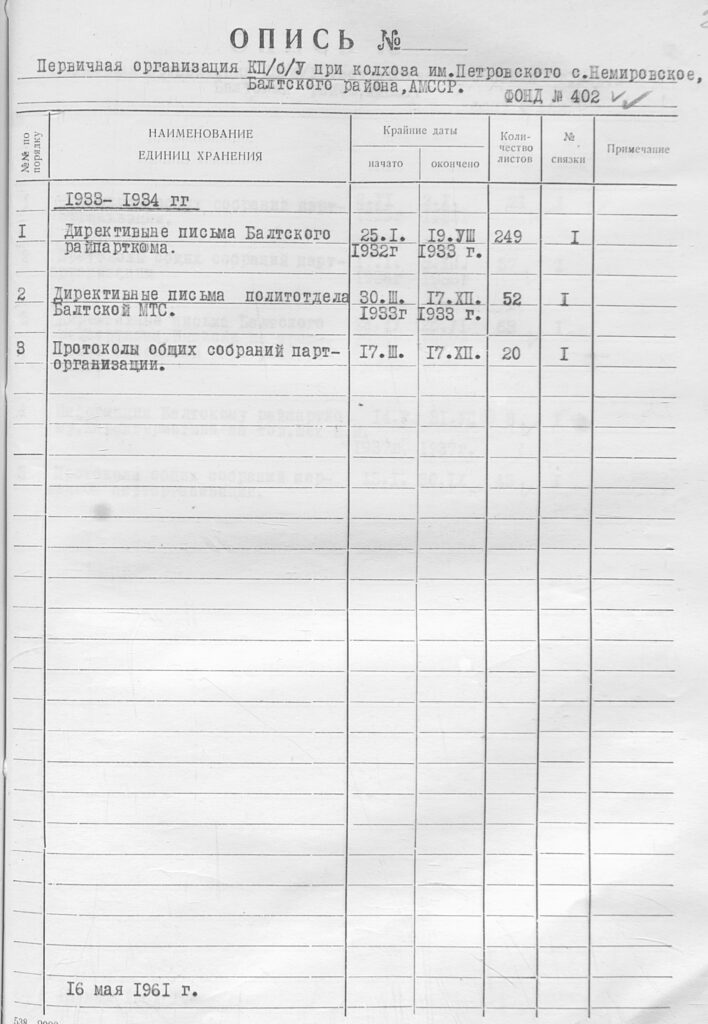 ОПИСЬ №
Первичная организация КП/б/У при колхоза им.Петровского с.Немировское,
Балтского района,АМССР.
ФОНД № 402
№№ по порядку
НАИМЕНОВАНИЕ ЕДИНИЦ ХРАНЕНИЯ
Крайние даты
начато
окончено
Коли-
чество
листов
№ связки
Примечание
1933- 1934 гг
I Директивыне письма Балтского 25.I. 19.УШ 249 I
райпарткома. 1932г 1933 г.
2 Директивные письма политотдела 30.Ш. 17.ХП. 52 I
Балтской МТС. 1933г 1933 г.
3 Протоколы общих собраний парт- 17.Ш. 17.ХП. 20 I
организации.
16 мая 1961 г.